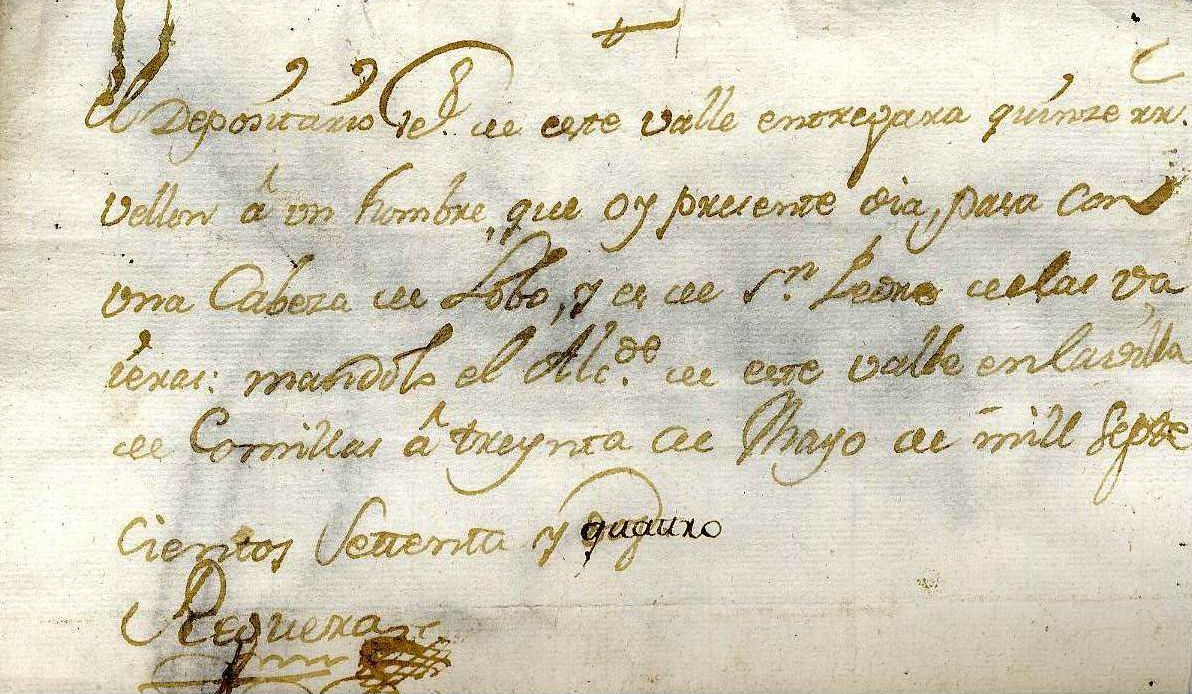 El Depositario de este valle entregara quinze rr.
vellon â un hombre, que oy presente dia, pasa con
una Cabeza de Lobo, y es de Sn. Pedro de las Va
eras: mandolo el Alc.de de este valle en la villa
de Comillas â treynta de Mayo de mill Septe
cientos Settenta y quatro
Reguera